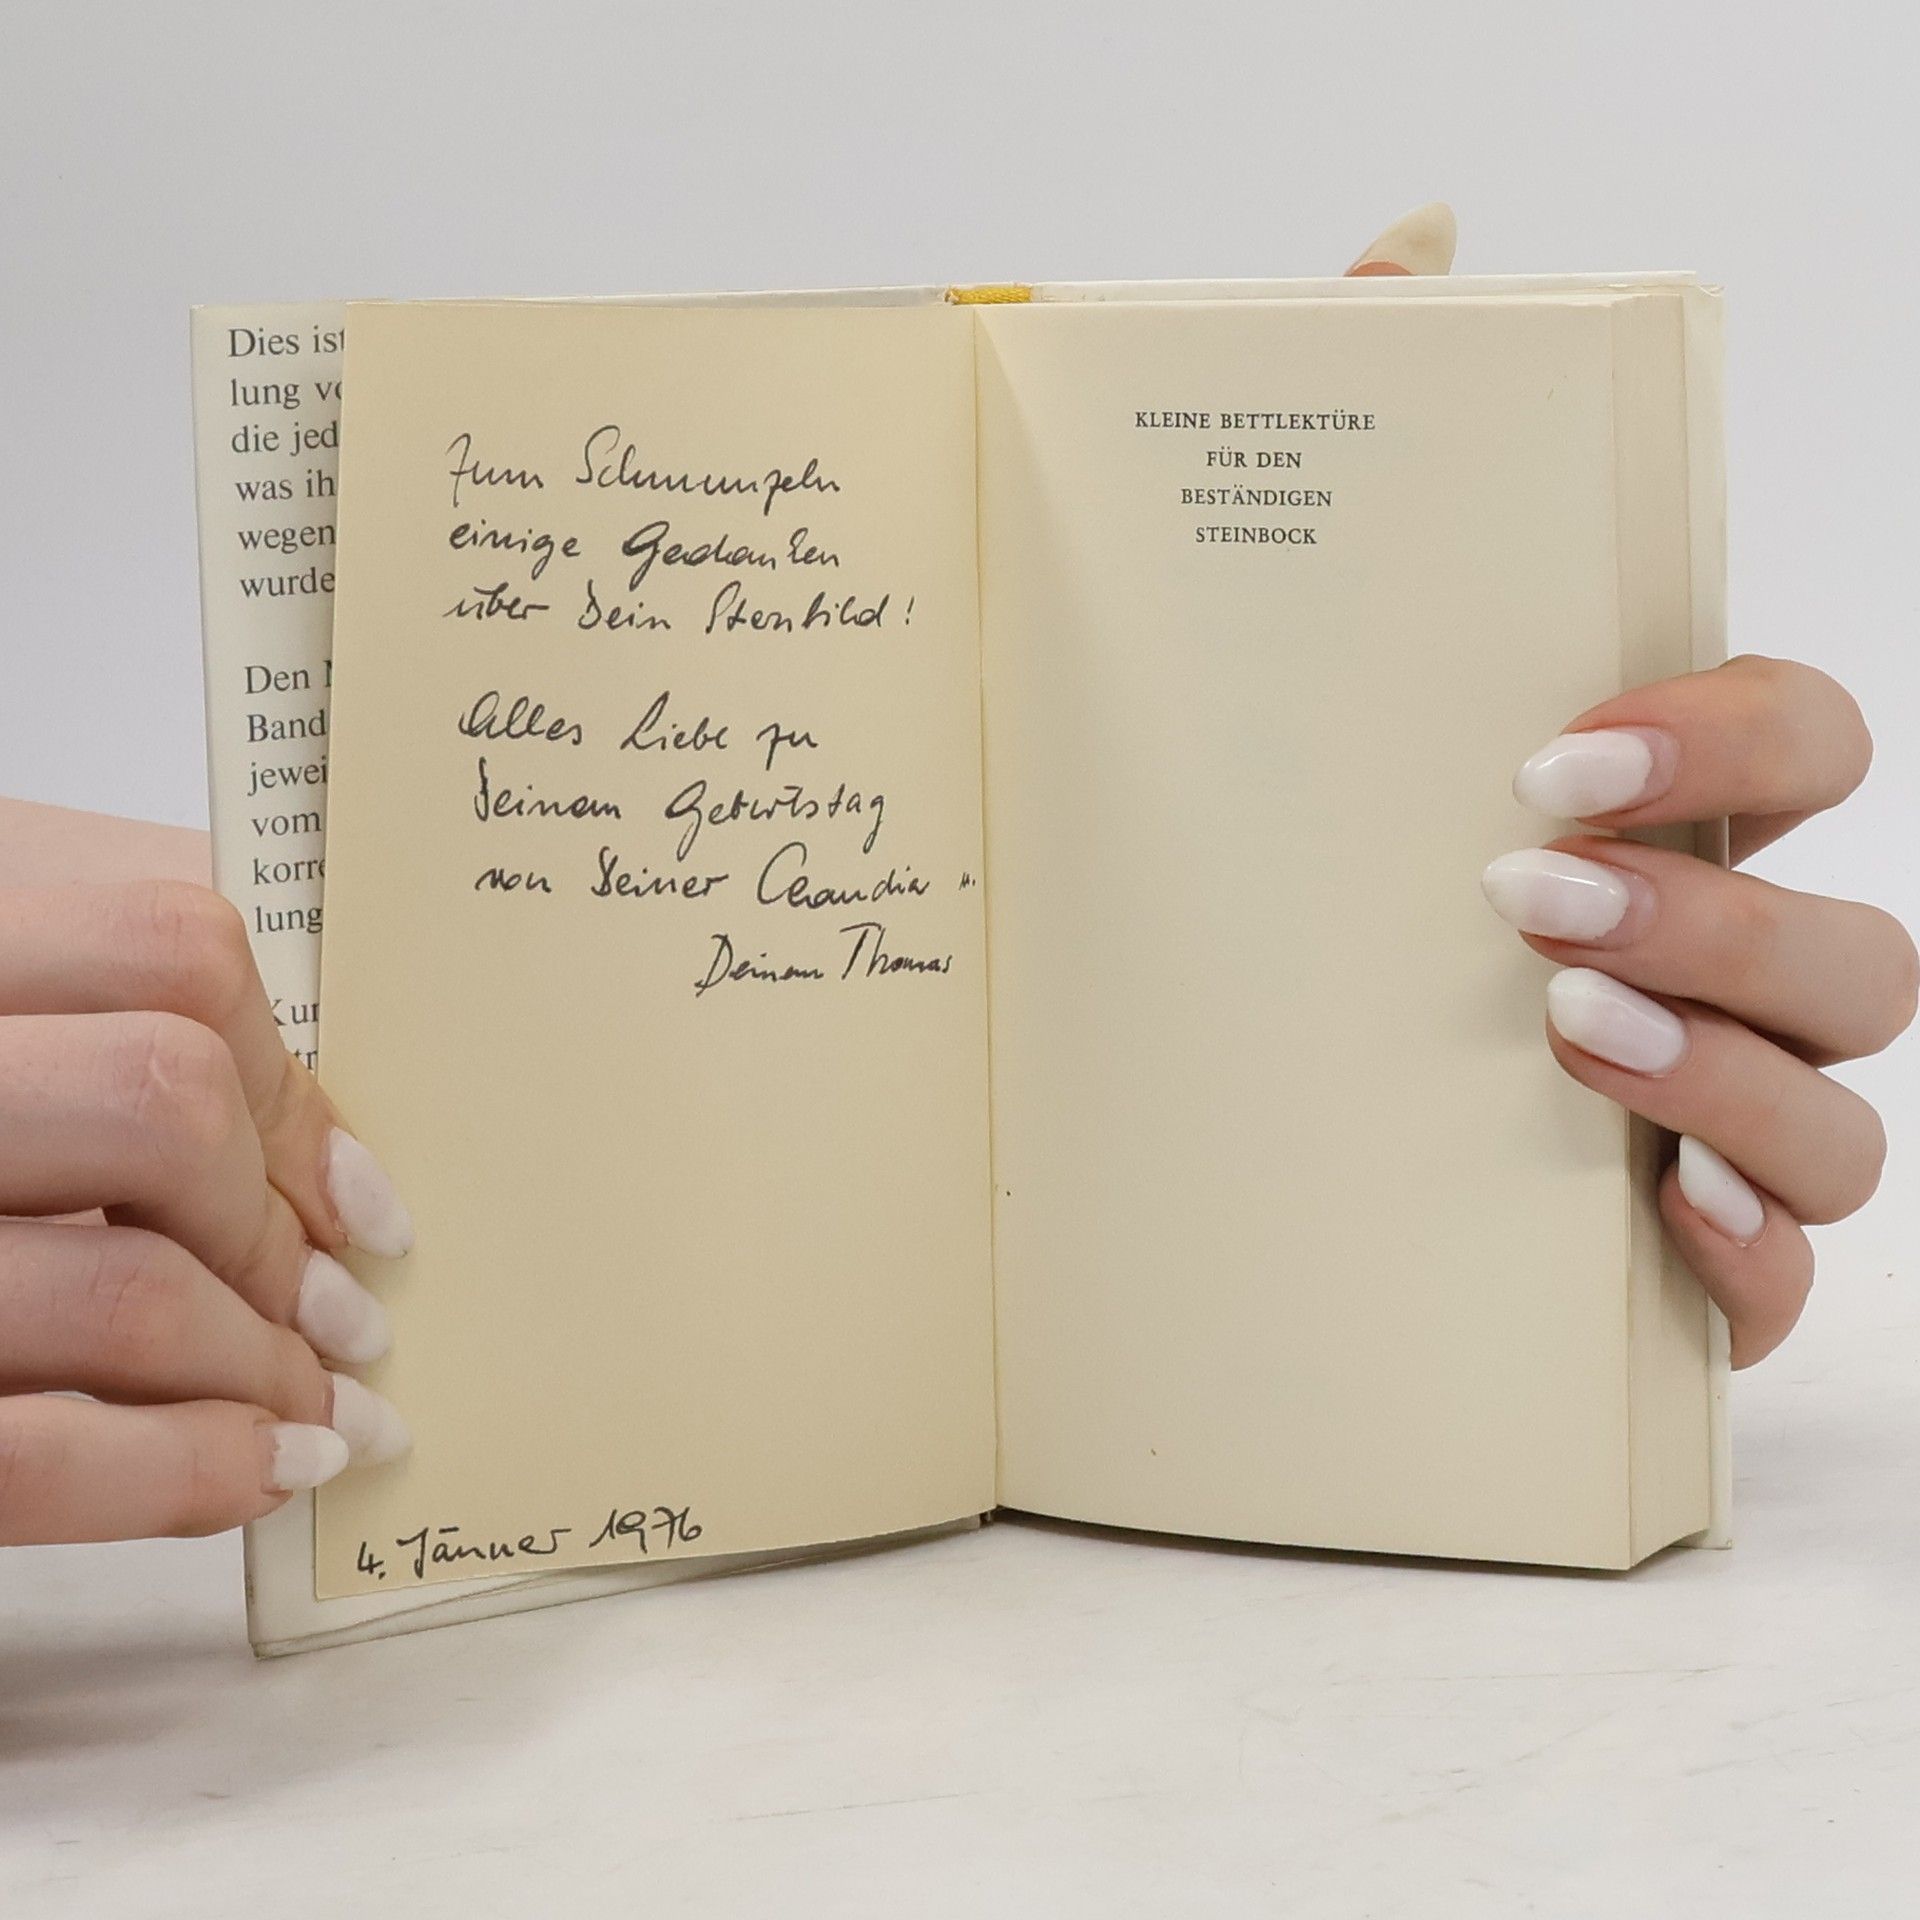 Dies ist
lung vo
die jed
was ih
wegen
wurde
Den
Band
jewei
vom
korre
lung
Kur
Zum Schmunzeln
einige Gedanken
über Dein Sternbild!
Alles Liebe zu
Deinem Geburtstag
von Deiner Claudia u.
Deinem Thomas
4. Jänner 1976
KLEINE BETTLEKTÜRE
FÜR DEN
BESTÄNDIGEN
STEINBOCK